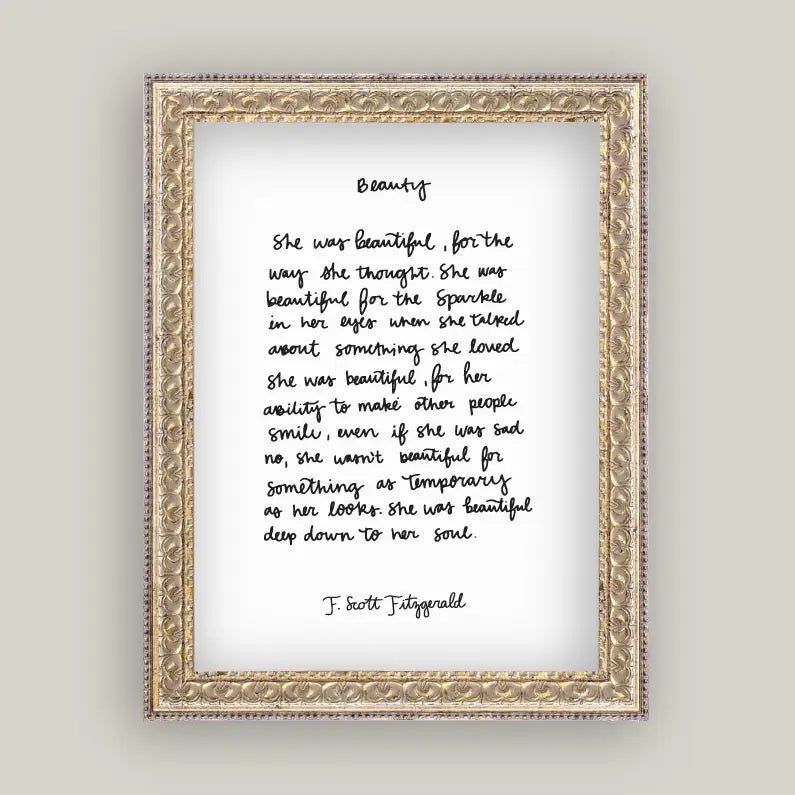 Beauty
She was beautiful, for the
way she thought. She was
beautiful for the sparkle
in her eyes when she talked
about something she loved
she was beautiful, for her
ability to make other people
smile, even if she was sad
no, she wasn't beautiful for
something as temporary
as her looks. She was beautiful
deep down to her soul.
F. Scott Fitzgerald